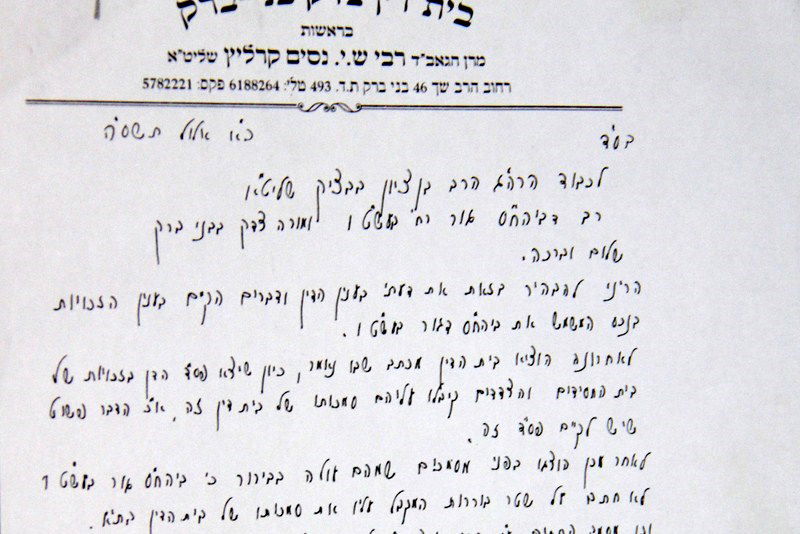 בית דין צדק בני ברק
בראשות
מרן הגאב"ד רבי ש.י. נסים קרליץ שליט"א
רחוב הרב שך 46 בני ברק ת.ד. 493 טל': 6188264 פקס: 5782221
בס"ד
כ"א אלול תשס"ה
לכבוד הרה"ג הרב בן ציון בבציק שליט"א
רב דביהח"ס גור רח' בעש"ט 1 ומורה צדק בבני ברק
שלום וברכה.
הריני להבהיר בזאת את דעתי בענין הדין ודברים הקיים בענין הזכויות
בנכס המשמש את ביהח"ס דגור בעש"ט 1.
לאחרונה הוציא בית הדין מכתב שבו נאמר, כיון שיצא פס"ד הדן בזכויות של
בית החסידים והצדדים קיבלו עליהם סמכותו של בית דין זה, א"כ הדבר פשוט
שיש לקיים פס"ד זה.
לאחר מכן הוצגו בפני מסמכים שמהם עולה בבירור כי ביהח"ס גור בעש"ט 1
לא חתם על שטר בוררות המקבל עליו את סמכותו של בית הדין בת"א.